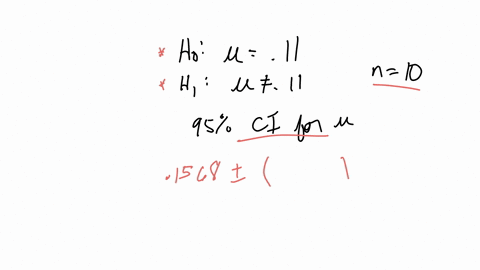 * H₀: μ = .11
* H₁: μ ≠ .11
n = 10
95% CI for μ
.1568 ± ( )